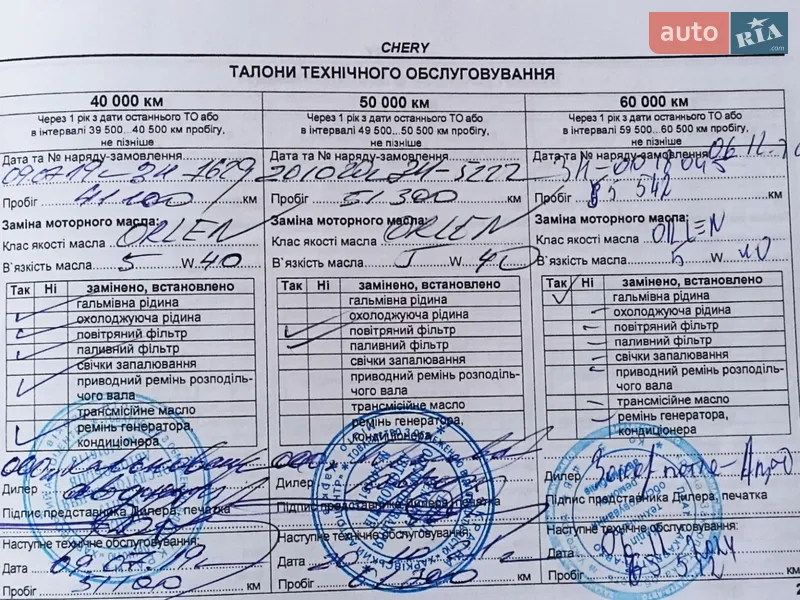 auto RIA.com
CHERY
ТАЛОНИ ТЕХНІЧНОГО ОБСЛУГОВУВАННЯ
40 000 км
Через 1 рік з дати останнього ТО або
в інтервалі 39 500...40 500 км пробігу,
не пізніше
Дата та № наряду-замовлення
Пробіг 41 100 км
Заміна моторного масла:
Клас якості масла ORLEN
В`язкість масла 5 W 40
Так Ні замінено, встановлено
гальмівна рідина
охолоджуюча рідина
повітряний фільтр
паливний фільтр
свічки запалювання
приводний ремінь розподіль-
чого вала
трансмісійне масло
ремінь генератора,
кондиціонера
Дилер
Підпис представника Дилера, печатка
Наступне технічне обслуговування:
Дата
Пробіг 51100 км
50 000 км
Через 1 рік з дати останнього ТО або
в інтервалі 49 500...50 500 км пробігу,
не пізніше
Дата та № наряду-замовлення
Пробіг 51 300 км
Заміна моторного масла:
Клас якості масла ORLEN
В`язкість масла 5 W 40
Так Ні замінено, встановлено
гальмівна рідина
охолоджуюча рідина
повітряний фільтр
паливний фільтр
свічки запалювання
приводний ремінь розподіль-
чого вала
трансмісійне масло
ремінь генератора,
кондиціонера
Дилер
Підпис представника Дилера, печатка
Наступне технічне обслуговування:
Дата
Пробіг км
60 000 км
Через 1 рік з дати останнього ТО або
в інтервалі 59 500...60 500 км пробігу,
не пізніше
Дата та № наряду-замовлення
Пробіг км
Заміна моторного масла:
Клас якості масла ORLEN
В`язкість масла 5 W 40
Так Ні замінено, встановлено
гальмівна рідина
охолоджуюча рідина
повітряний фільтр
паливний фільтр
свічки запалювання
приводний ремінь розподіль-
чого вала
трансмісійне масло
ремінь генератора,
кондиціонера
Дилер
Підпис представника Дилера, печатка
Наступне технічне обслуговування:
Дата
Пробіг км